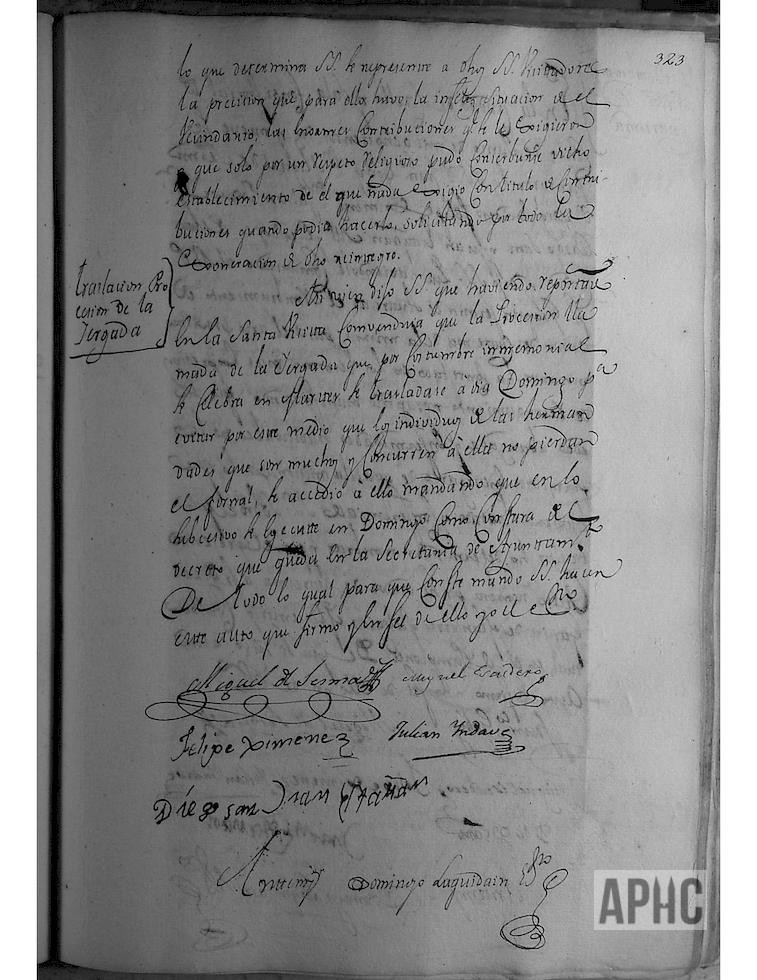 323
lo que determina SS. se represente a dhos SS. Visitadores
la precision que para ello huvo, la infeliz situacion de el
Vecindario, las enormes Contribuciones qe. se le Exigieron
que solo por un respeto religioso pudo Conserbarse dicho
establecimiento de el que nada exigio Con titulo de Contri-
buciones quando podia hacerlo, solicitando por todo la
Exoneracion de dho reintegro.
traslacion Pro
cesion de la
Jergada
Asi mismo dijo SS. que haviendo reportado
En la Santa Visita Combendria que la Procesion lla
mada de la Jergada que por Costumbre inmemorial
se Celebra en Martes se trasladase a dia Domingo pa.
evitar por este medio que los individuos de las herman
dades que son muchos y Concurren a ella no pierdan
el Jornal, se accedio a ello mandando que en lo
subcesivo se Egecute en Domingo Como Constara de el
decreto que queda en la Secretaria de Ayuntamto.
De todo lo qual para que Conste mando SS. hacer
este auto que firmo y en fee de ello yo el Esno
Miguel de Sesma
Miguel Escudero
Felipe Ximenez
Julian Yndave
Diego san Juan
Ante mi
Domingo Laquidain Esno
APHC